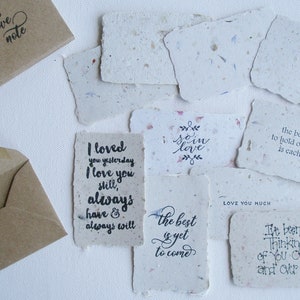 love
note
I loved
you yesterday
I love you
still,
always
have &
always will
so in
love
the best
is yet
to come
LOVE YOU MUCH
the be
to hold o
is each
I've been
thinking
of you
over